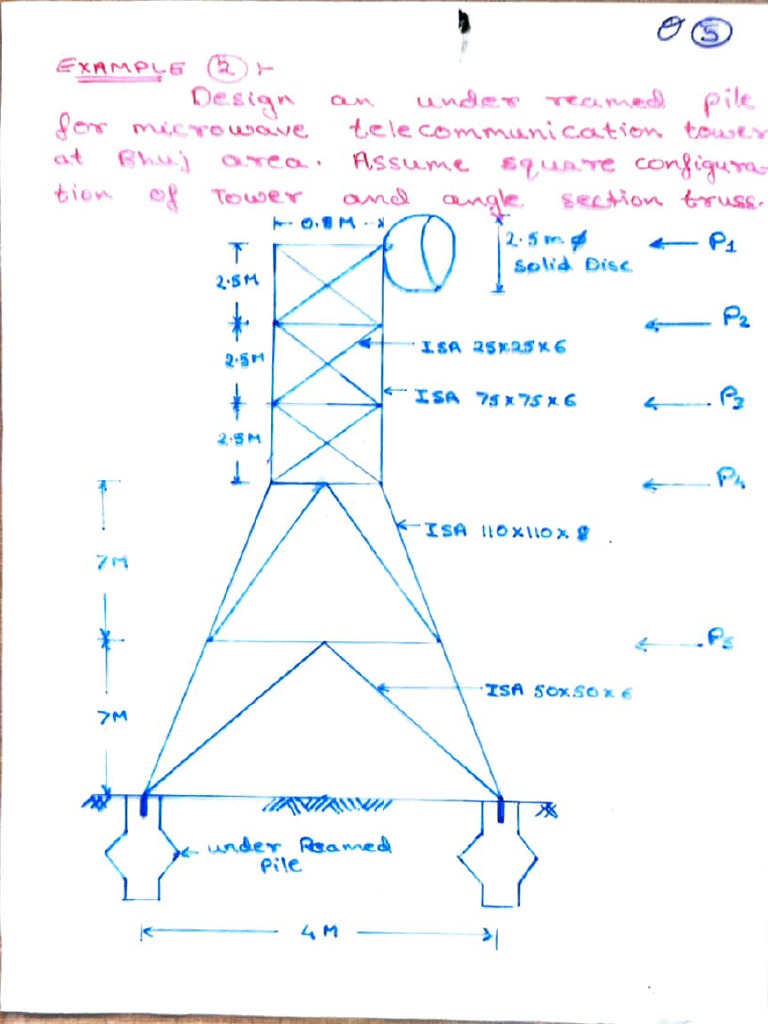 5
EXAMPLE 2 :-
Design an under reamed pile
for microwave telecommunication tower
at Bhuj area. Assume square configura-
tion of Tower and angle section truss.
0.8M
2.5M
2.5 m ϕ
Solid Disc
P1
P2
2.5M
ISA 25x25x6
ISA 75x75x6
P3
2.5M
P4
ISA 110x110x8
7M
P5
ISA 50x50x6
7M
under Reamed
Pile
4M